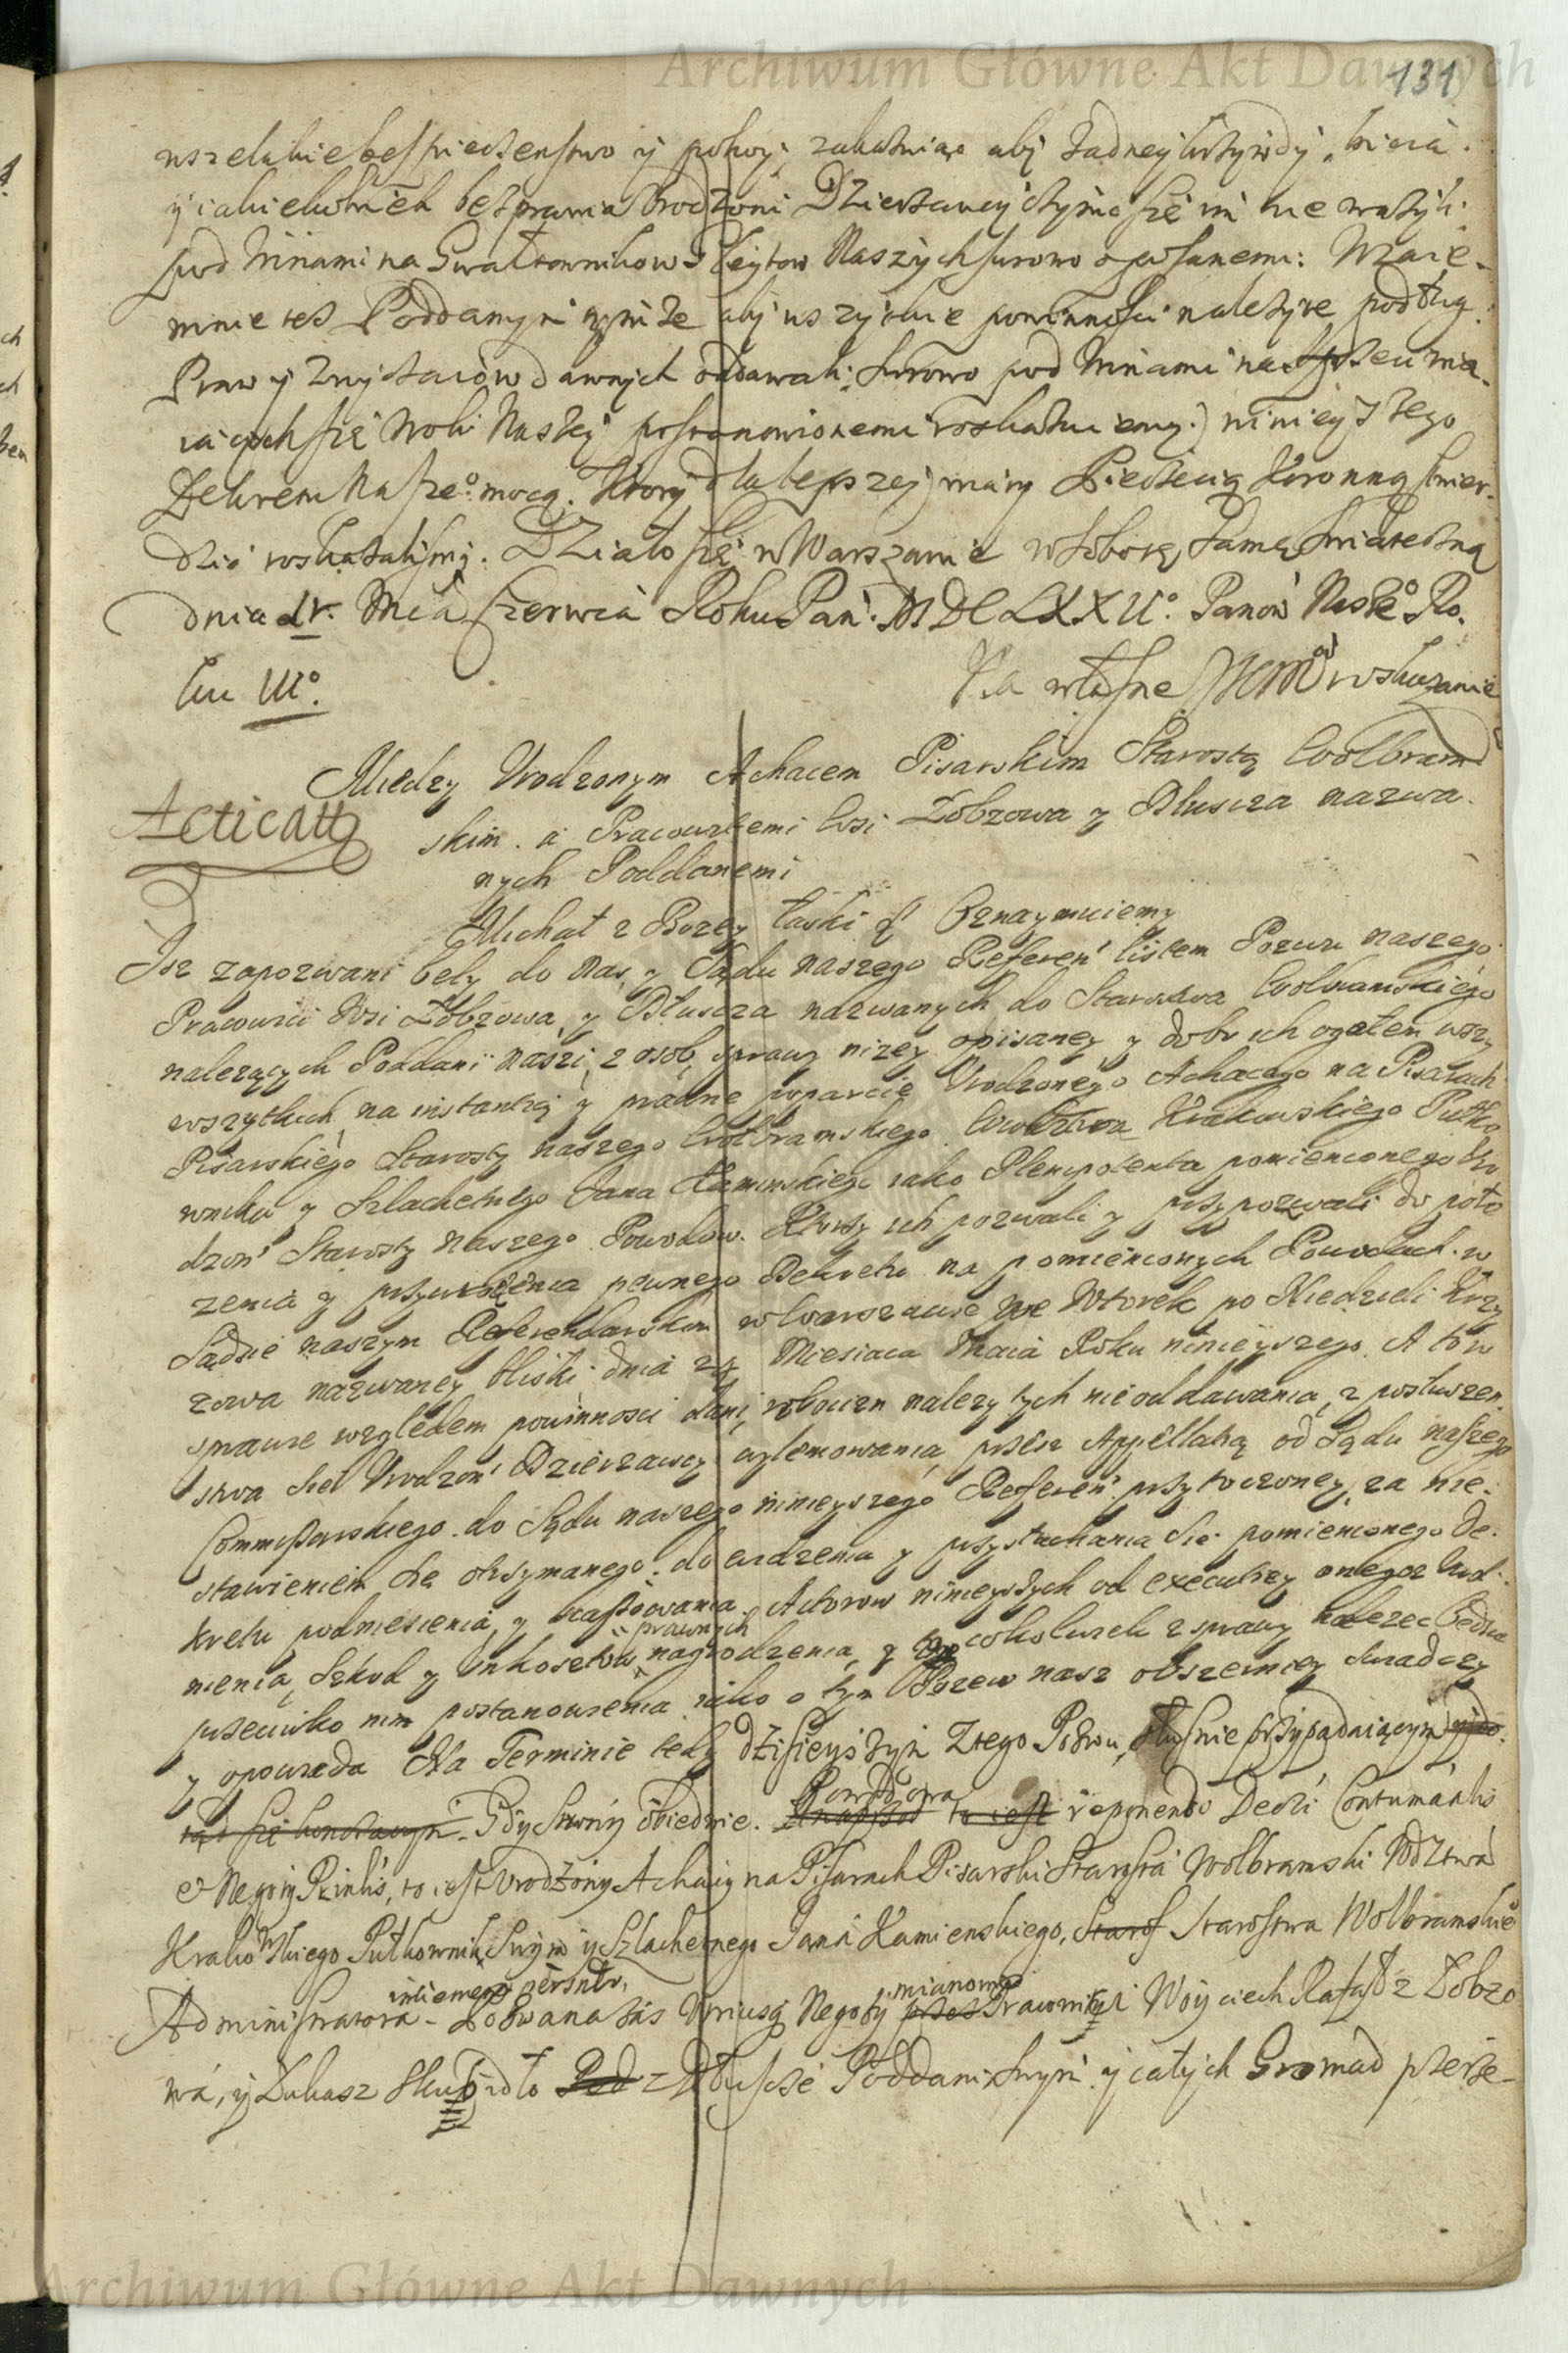 Archiwum Główne Akt Dawnych
131
wszelakie bespieczenstwo y pokoy, zakazuiąc aby żadney krzywdy, bicia
y iakiekolwiek bezprawia Urodzoni Dzierżawcy czynic się im nie ważyli
pod Winami na Gwałtownikow Gleytow Naszych surowo opisanemi: Wzaie-
mnie tes Poddanym aby wszytkie powinnosci należyte podług
Praw y Zwyczaiow dawnych oddawali, surowo pod Winami na sprzeciwia-
iących się Woli Naszey postanowionemi roskazuiemy. ninieyszego
Dekretu Nasze° mocą. Ktory dla lepszey wiary Pieczęcią Koronną stwier-
dzic roskazalismy. Działo się w Warszawie w Sobotę Samę Swiąteczną
dnia Mca Czerwca Roku Pan. MDCLXXII° Panow Nasze° Ro-
ku III°.
Na własne JKMci wskazanie
Acticatt
Między Urodzonym Achacem Pisarskim Starostą Wolbram
skim. a Pracowitemi Wsi Zobzowa y Dłuscza nazwa-
nych Poddanemi
Michał z Bozey łaski &c Oznaymuiemy
Isz zapozwani bely do nas, y Sądu naszego Referen listem Pozwu naszego
Pracowici Wsi Zobzowa, y Dłuscza nazwanych do Starostwa Wolbramskiego
nalezących Poddani naszi, z osob, sprawy nizey opisaney, y dobr ich ogołem wszy
wszytkich, na instantią y prawne poparcie Urodzonego Achacego na Pisarach
Pisarskiego Starosty naszego Wolbramskiego Krakowskiego Pułko
wnika y Szlachetnego Jana Kaminskiego iako Plenipotenta pomienionego Uro
dzon Starosty naszego Powodow. Ktorsy ich pozwali y przypozwali do poło
zenia y przywrocenia pewnego Dekretu na pomienionych Powodach w
Sądzie naszym Referendarskim w Warszawie we Wtorek po Niedzieli Krzy
zowa nazwaney bliski dnia 24 Miesiąca Maia Roku ninieyszego. A to w
sprawie względem powinnosci dani, robocizn nalezytych nie oddawania, z posłuszen
stwa sie Urodzon Dzierzawcy wylamowania, przesz Appellatią od Sądu naszego
Commissarskiego do Sądu naszego ninieyszego Referen przytoczoney, za nie-
stawieniem się otrzymanego. do widzenia y przysłuchania sie pomienionego De-
kretu podniesienia, y kassowania. Actorow ninieyszych od executiey onegoz Uwol-
nienia, Szkod y Unkosztow prawnych nagrodzenia, y cokolwiek z sprawy nalezec będzie
przeciwko nim postanowienia iako o tym Pozew nasz obszerniey swiadczy
y opowieda Na Terminie tedy dzisieyszym z tego Pozwu, słusznie przypadaiącym
Gdy Strony obiedwie. Powodowa to iest reponendo Decti Contumatis
& Negoty Pzinlis, to iest Urodzony Achacy na Pisarach Pisarski Starosta Wolbramski Wodztwa
Krakowskiego Pułkownik, Swym y Szlachetnego Jana Kamienskiego, Starost Starostwa Wolbramskie°
Administratora - imieniem persntr, Pozwana zas Uniusq Negoty mianowi Pracowity Woyciech Rataÿ z Zobzo
wa, y Łukasz Skubidło z Dłuscze Poddani Swym y całych Gromad przerze-
Archiwum Główne Akt Dawnych